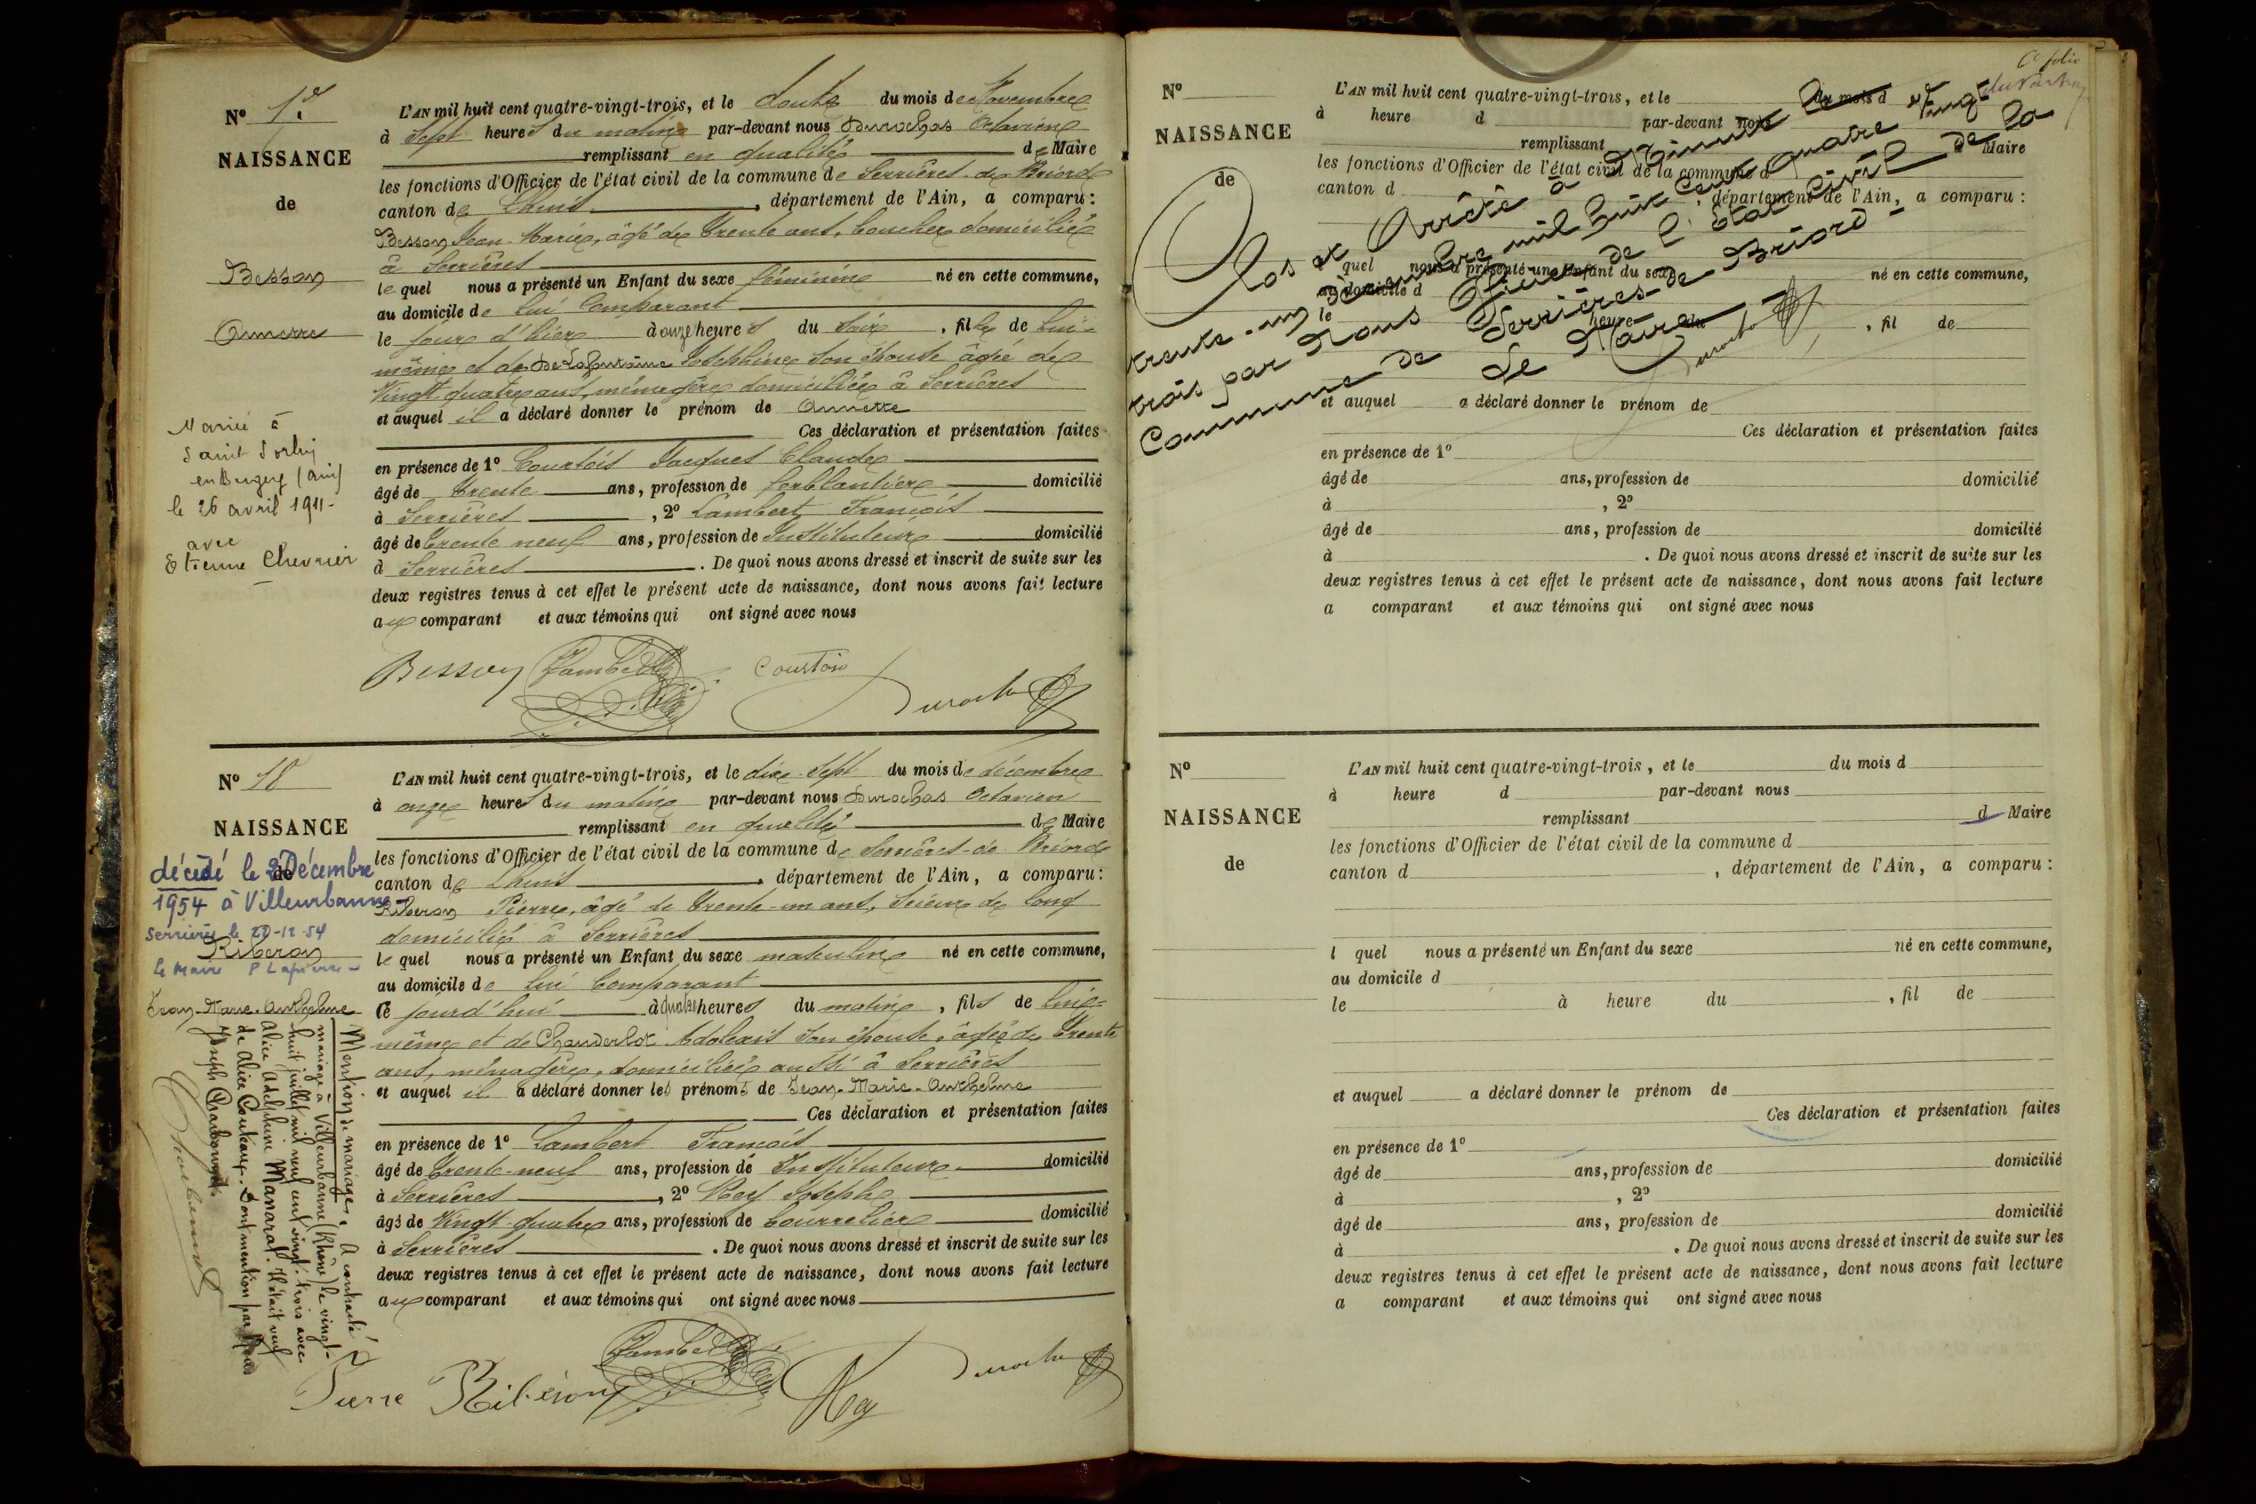 Nº
NAISSANCE
de
Besson
Annette
L'AN mil huit cent quatre-vingt-trois, et le douze du mois de Novembre
à Sept heures du matin par-devant nous Durochas Octavien
remplissant en qualité de Maire
les fonctions d'Officier de l'état civil de la commune de Serrières-de-Briord
canton de Lhuis, département de l'Ain, a comparu:
Besson Jean-Marie, âgé de Trente ans, boucher domicilié
à Serrières
lequel nous a présenté un Enfant du sexe féminin né en cette commune,
au domicile de lui Comparant
le jour d'hier à onze heures du soir, fille de lui-
même et de Delafontaine Joséphine son épouse âgée de
Vingt quatre ans, ménagère domiciliée à Serrières
et auquel il a déclaré donner le prénom de Annette
Ces déclaration et présentation faites
en présence de 1º Courtois Jacques Claude
âgé de Trente ans, profession de ferblantier domicilié
à Serrières, 2º Lambert François
âgé de Trente neuf ans, profession de Instituteur domicilié
à Serrières. De quoi nous avons dressé et inscrit de suite sur les
deux registres tenus à cet effet le présent acte de naissance, dont nous avons fait lecture
aux comparant et aux témoins qui ont signé avec nous
Besson Lambert Courtois Durochas
Marié à
Saint Sorlin
en Bugey (Ain)
le 26 avril 1911-
avec
Etienne Chevrier
Nº 18
NAISSANCE
de
décédé le Décembre
1954 à Villeurbanne
Serrières le 20-12-54
Riberon
Le Maire P Lapierre
Jean-Marie-Anthelme
L'AN mil huit cent quatre-vingt-trois, et le dix-Sept du mois de décembre
à onze heures du matin par-devant nous Durochas Octavien
remplissant en qualité de Maire
les fonctions d'Officier de l'état civil de la commune de Serrières-de-Briord
canton de Lhuis, département de l'Ain, a comparu:
Riberon Pierre, âgé de Trente-un ans, Scieur de long
domicilié à Serrières
lequel nous a présenté un Enfant du sexe masculin né en cette commune,
au domicile de lui Comparant
Ce jourd'hui à quatre heures du matin, fils de lui-
même et de Chanderlot Adelaïs son épouse, âgée de Trente
ans, ménagère, domiciliée aussi à Serrières
et auquel il a déclaré donner les prénoms de Jean-Marie-Anthelme
Ces déclaration et présentation faites
en présence de 1º Lambert François
âgé de Trente-neuf ans, profession de Instituteur domicilié
à Serrières, 2º Rey Joseph
âgé de Vingt-quatre ans, profession de bourrelier domicilié
à Serrières. De quoi nous avons dressé et inscrit de suite sur les
deux registres tenus à cet effet le présent acte de naissance, dont nous avons fait lecture
aux comparant et aux témoins qui ont signé avec nous
Pierre Ribéron Lambert Rey Durochas
Mention de mariage. A contracté
mariage à Villeurbanne (Rhône) le vingt-
huit juillet mil neuf cent vingt-trois avec
Alice Adelphine Manarat. Il était veuf
de Alice Couteaux. Dont mention par Nous
Joseph Charbonnet
du mois d
Nº
NAISSANCE
de
L'AN mil huit cent quatre-vingt-trois, et le du mois d
à heure d par-devant nous
remplissant d Maire
les fonctions d'Officier de l'état civil de la commune d
canton d, département de l'Ain, a comparu:
quel nous a présenté un Enfant du sexe né en cette commune,
au domicile d
le heure du, fil de
et auquel a déclaré donner le prénom de
Ces déclaration et présentation faites
en présence de 1º
âgé de ans, profession de domicilié
à, 2º
âgé de ans, profession de domicilié
à. De quoi nous avons dressé et inscrit de suite sur les
deux registres tenus à cet effet le présent acte de naissance, dont nous avons fait lecture
a comparant et aux témoins qui ont signé avec nous
Clos et Arrêté à Minuit le
trente-un Décembre mil huit cent quatre vingt-
trois par Nous Officier de l'État Civil de la
Commune de Serrières-de-Briord-
Le Maire
Durochas
Nº
NAISSANCE
de
L'AN mil huit cent quatre-vingt-trois, et le du mois d
à heure d par-devant nous
remplissant d Maire
les fonctions d'Officier de l'état civil de la commune d
canton d, département de l'Ain, a comparu:
l quel nous a présenté un Enfant du sexe né en cette commune,
au domicile d
le à heure du, fil de
et auquel a déclaré donner le prénom de
Ces déclaration et présentation faites
en présence de 1º
âgé de ans, profession de domicilié
à, 2º
âgé de ans, profession de domicilié
à. De quoi nous avons dressé et inscrit de suite sur les
deux registres tenus à cet effet le présent acte de naissance, dont nous avons fait lecture
a comparant et aux témoins qui ont signé avec nous